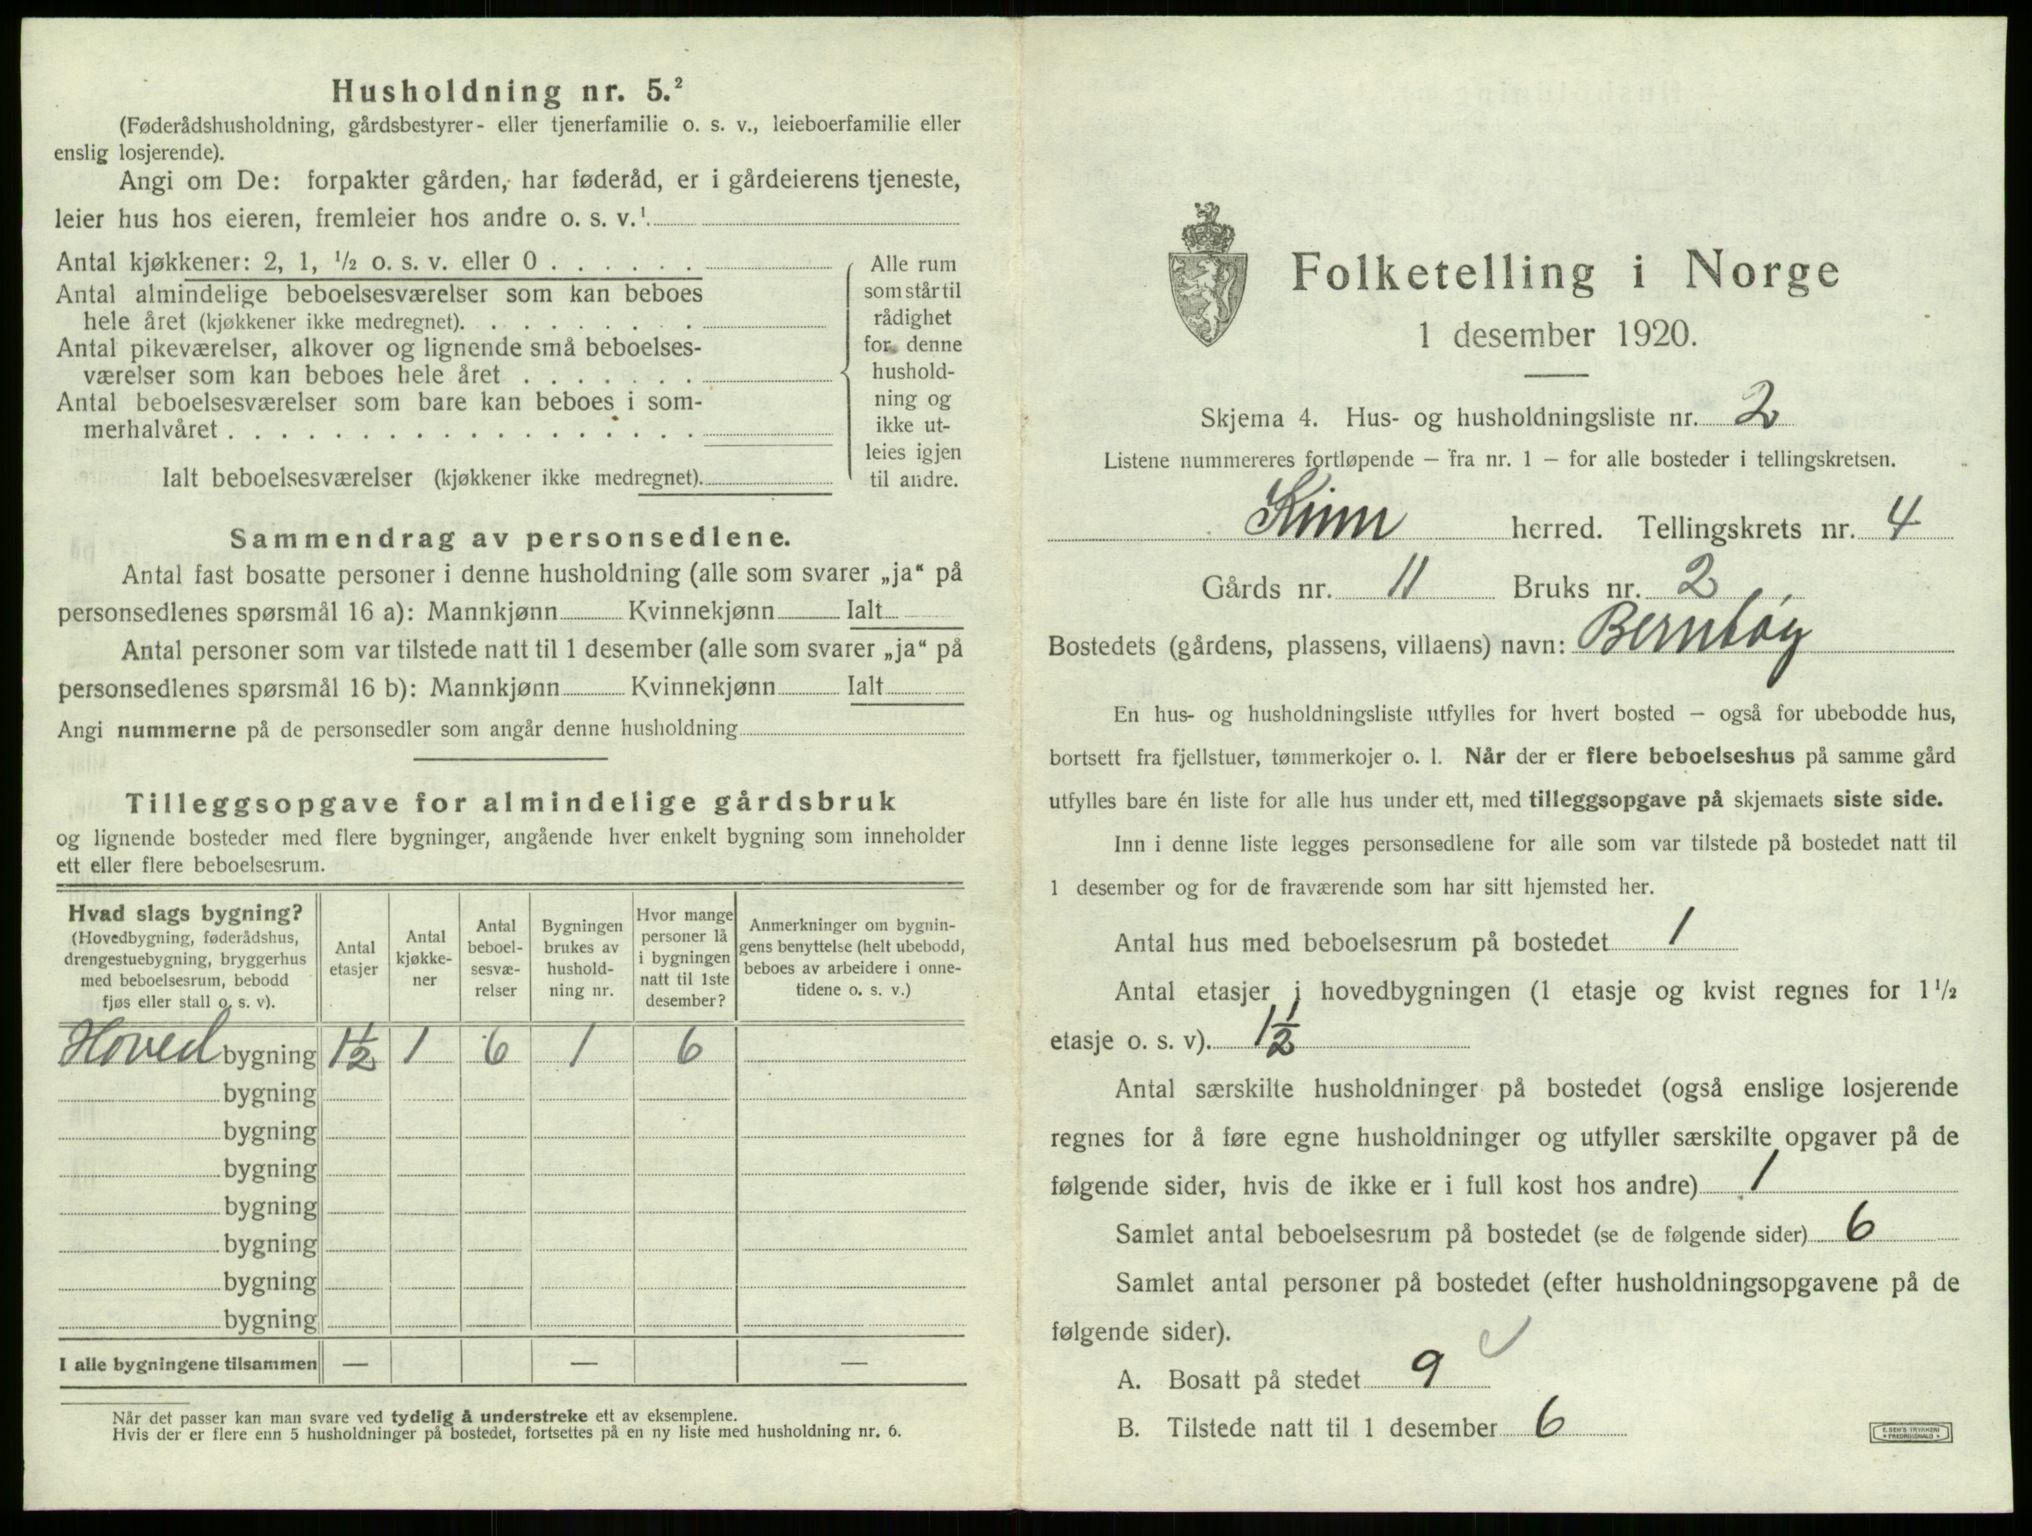 Husholdning nr. 5.²
(Føderådshusholdning, gårdsbestyrer- eller tjenerfamilie o. s. v., leieboerfamilie eller
enslig losjerende).
Angi om De: forpakter gården, har føderåd, er i gårdeierens tjeneste,
leier hus hos eieren, fremleier hos andre o. s. v.¹
Antal kjøkkener: 2, 1, ½ o. s. v. eller 0 . . . . . .
Antal almindelige beboelsesværelser som kan beboes
hele året (kjøkkener ikke medregnet). . . . . . . . .
Antal pikeværelser, alkover og lignende små beboelses-
værelser som kan beboes hele året . . . . . . .
Antal beboelsesværelser som bare kan beboes i som-
merhalvåret . . . . . . . . . . . . . . . . . .
Ialt beboelsesværelser (kjøkkener ikke medregnet).
Alle rum
som står til
rådighet
for denne
hushold-
ning og
ikke ut-
leies igjen
til andre.
Sammendrag av personsedlene.
Antal fast bosatte personer i denne husholdning (alle som svarer „ja“ på
personsedlenes spørsmål 16 a): Mannkjønn Kvinnekjønn Ialt
Antal personer som var tilstede natt til 1 desember (alle som svarer „ja“ på
personsedlenes spørsmål 16 b): Mannkjønn Kvinnekjønn Ialt
Angi nummerne på de personsedler som angår denne husholdning
Tilleggsopgave for almindelige gårdsbruk
og lignende bosteder med flere bygninger, angående hver enkelt bygning som inneholder
ett eller flere beboelsesrum.
Hvad slags bygning?
(Hovedbygning, føderådshus,
drengestuebygning, bryggerhus
med beboelsesrum, bebodd
fjøs eller stall o. s. v).
Antal
etasjer
Antal
kjøkke-
ner
Antal
beboel-
sesvæ-
relser
Bygningen
brukes av
hushold-
ning nr.
Hvor mange
personer lå
i bygningen
natt til 1ste
desember?
Anmerkninger om bygnin-
gens benyttelse (helt ubebodd,
beboes av arbeidere i onne-
tidene o. s. v.)
Hoved bygning 1½ 1 6 1 6
bygning
bygning
bygning
bygning
bygning
bygning
bygning
I alle bygningene tilsammen — — —
Når det passer kan man svare ved tydelig å understreke ett av eksemplene.
Hvis der er flere enn 5 husholdninger på bostedet, fortsettes på en ny liste med husholdning nr. 6.
Folketelling i Norge
1 desember 1920.
Skjema 4. Hus- og husholdningsliste nr. 2
Listene nummereres fortløpende – fra nr. 1 – for alle bosteder i tellingskretsen.
Kinn herred. Tellingskrets nr. 4
Gårds nr. 11 Bruks nr. 2
Bostedets (gårdens, plassens, villaens) navn: Berntøy
En hus- og husholdningsliste utfylles for hvert bosted – også for ubebodde hus,
bortsett fra fjellstuer, tømmerkojer o. l. Når der er flere beboelseshus på samme gård
utfylles bare én liste for alle hus under ett, med tilleggsopgave på skjemaets siste side.
Inn i denne liste legges personsedlene for alle som var tilstede på bostedet natt til
1 desember og for de fraværende som har sitt hjemsted her.
Antal hus med beboelsesrum på bostedet 1
Antal etasjer i hovedbygningen (1 etasje og kvist regnes for 1½
etasje o. s. v). 1½
Antal særskilte husholdninger på bostedet (også enslige losjerende
regnes for å føre egne husholdninger og utfyller særskilte opgaver på de
følgende sider, hvis de ikke er i full kost hos andre) 1
Samlet antal beboelsesrum på bostedet (se de følgende sider) 6
Samlet antal personer på bostedet (efter husholdningsopgavene på de
følgende sider).
A. Bosatt på stedet 9
B. Tilstede natt til 1 desember 6
E. SEM'S TRYKKERI
FREDRIKSHALD